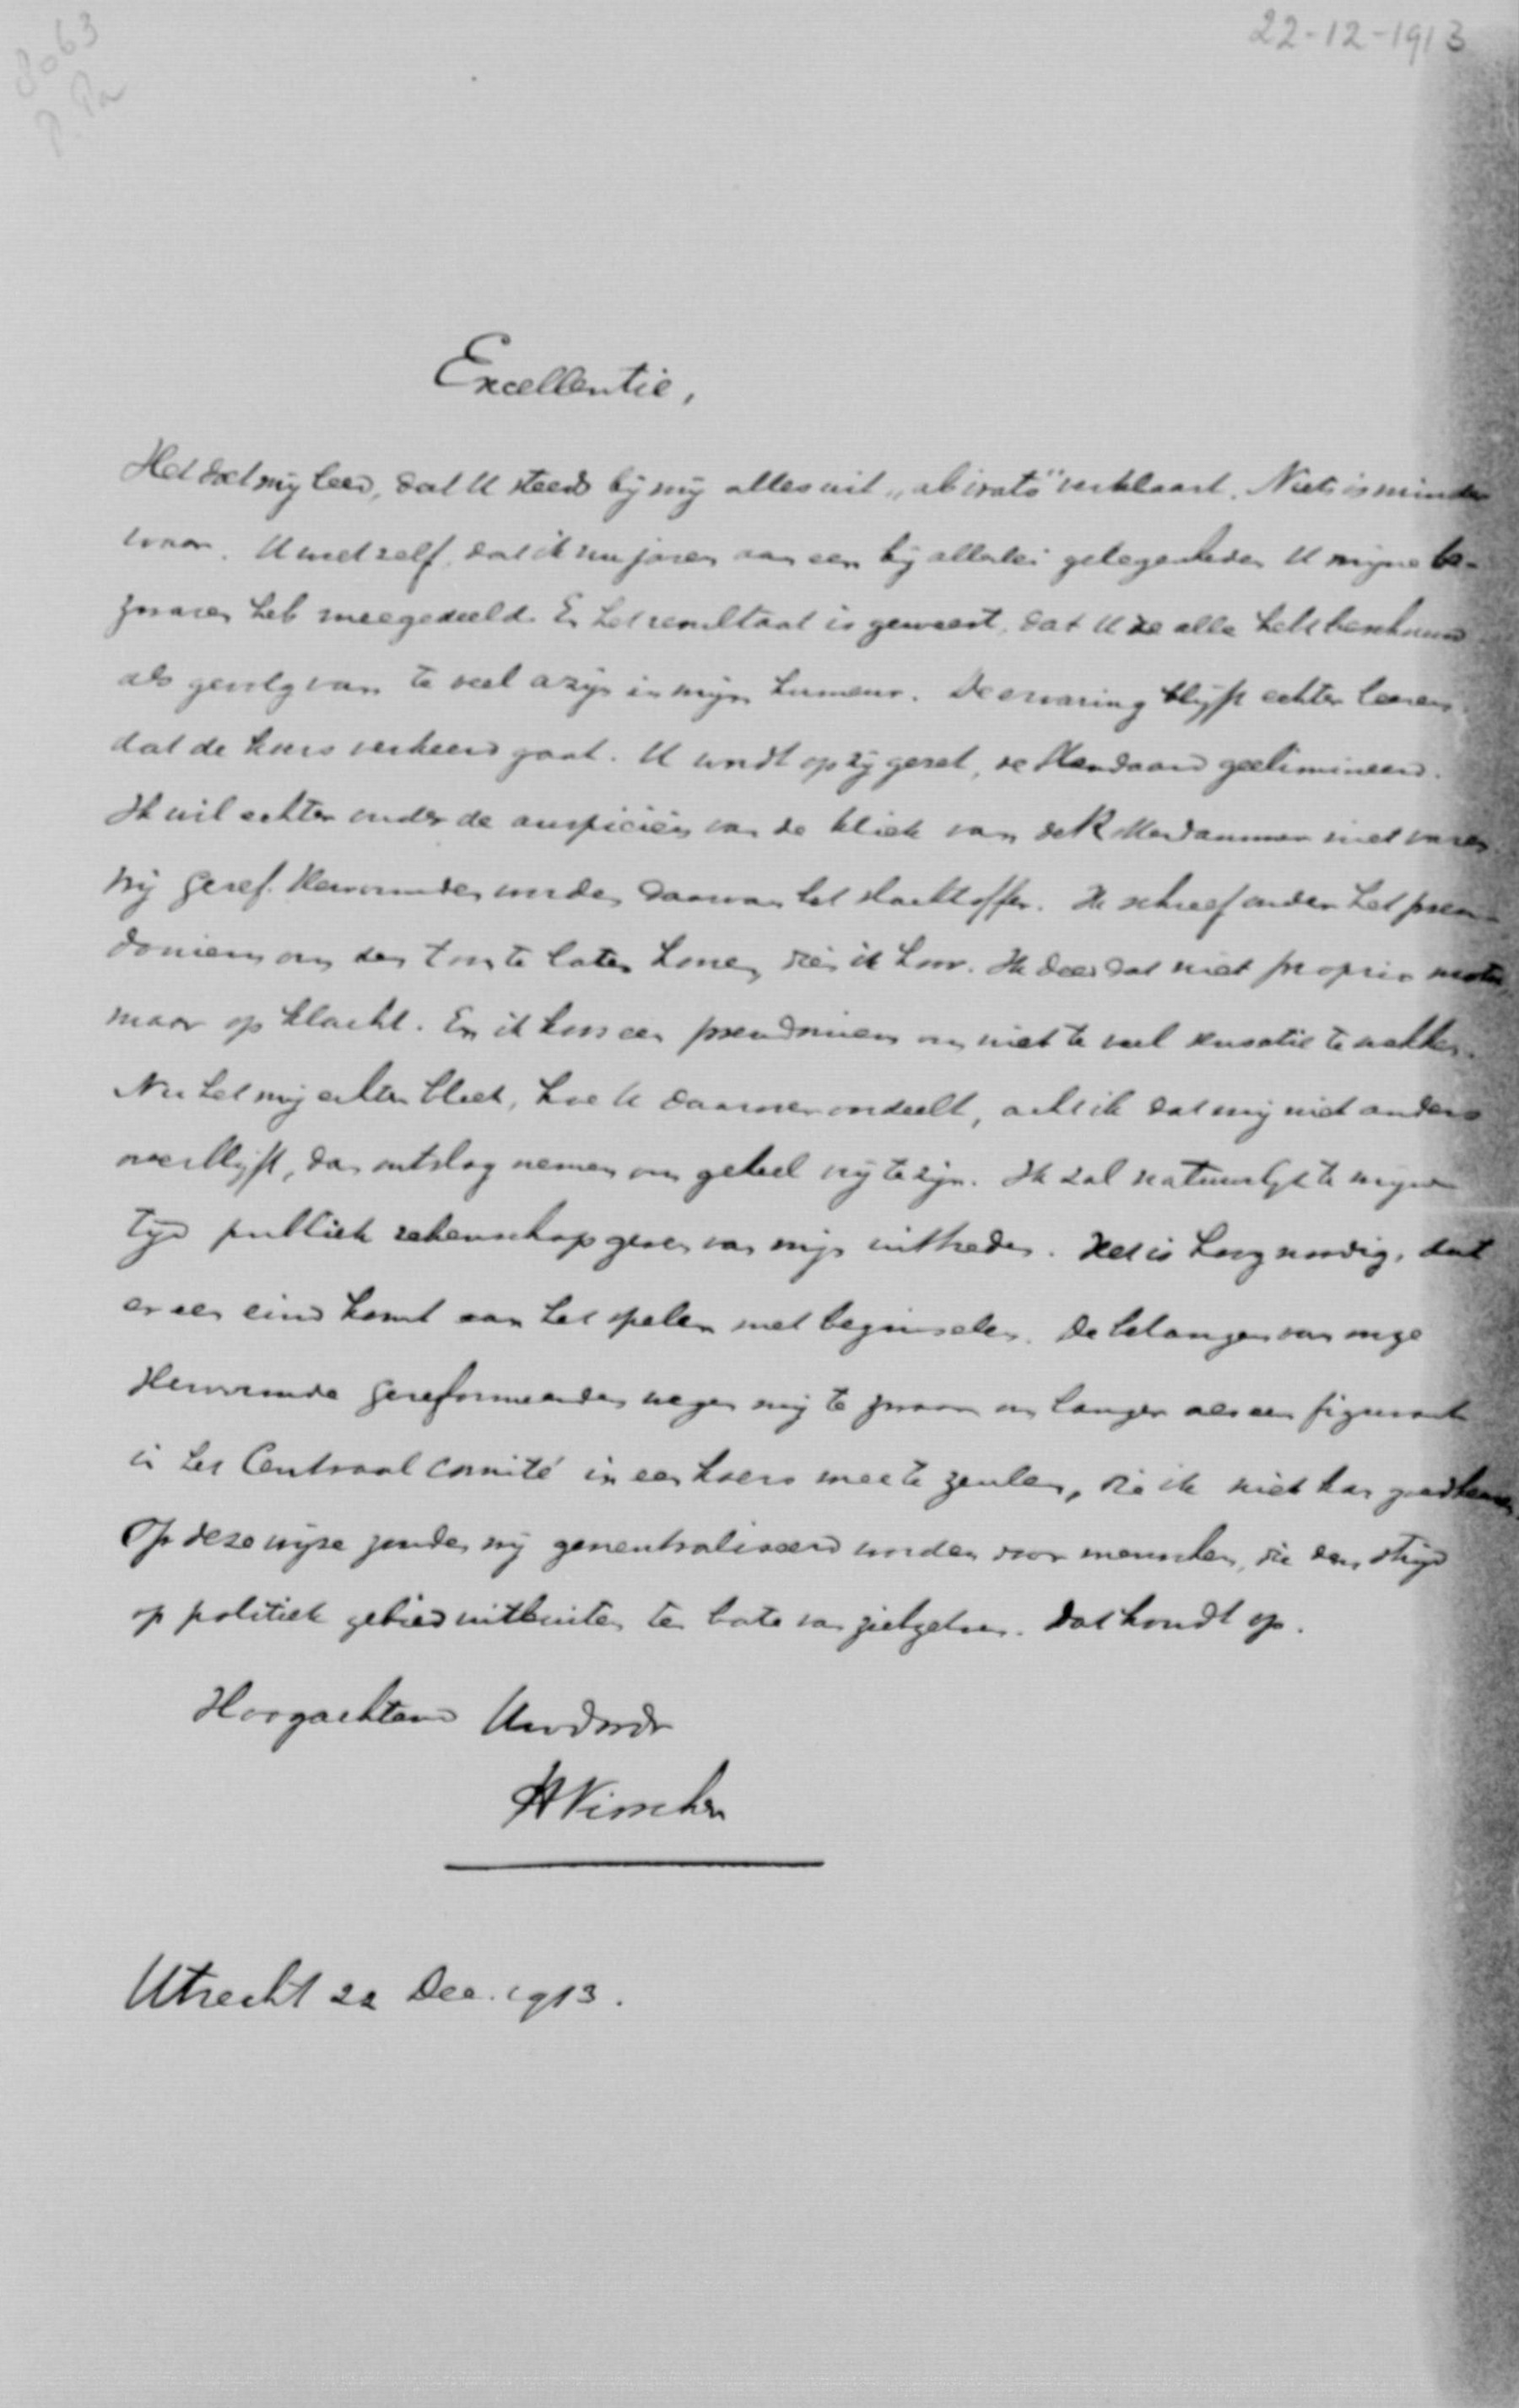 22-12-1913
8063
Excellentie,
Het doet mij leed, dat U steeds bij mij alles uit „ab irato" verklaart. Niets is minder
waar. U weet zelf, dat ik nu jaren aan een bij allerlei gelegenheden U mijne be-
zwaren heb meegedeeld. En het resultaat is geweest, dat U ze alle hebt beschouwd
als gevolg van te veel azijn in mijn humeur. De ervaring blijft echter leeren,
dat de koers verkeerd gaat. U wordt op zij gezet, de Standaard geelimineerd.
Ik wil echter onder de auspiciën van de kliek van de Rotterdammer niet varen.
Wij Geref. Hervormden worden daarvan het slachtoffer. Ik schreef onder het pseu-
doniem om den toon te laten hooren, dien ik hoor. Ik deed dat niet proprio motu,
maar op klacht. En ik koos een pseudoniem om niet te veel sensatie te wekken.
Nu het mij echter bleek, hoe U daarover oordeelt, acht ik dat mij niet anders
overblijft, dan ontslag nemen om geheel vrij te zijn. Ik zal natuurlijk te mijner
tijd publiek rekenschap geven van mijn uittreden. Het is hoog noodig, dat
er een eind komt aan het spelen met beginselen. De belangen van onze
Hervormde Gereformeerden wegen mij te zwaar om langer als een figurant
in het Centraal Comité in een koers mee te zeulen, die ik niet kan goedkeuren.
Op deze wijze zouden wij geneutraliseerd worden voor menschen, die den strijd
op politiek gebied uitbuiten ten bate van . Dat houdt op.
Hoogachtend Uwdwdr
HVisscher
Utrecht 22 Dec. 1913.